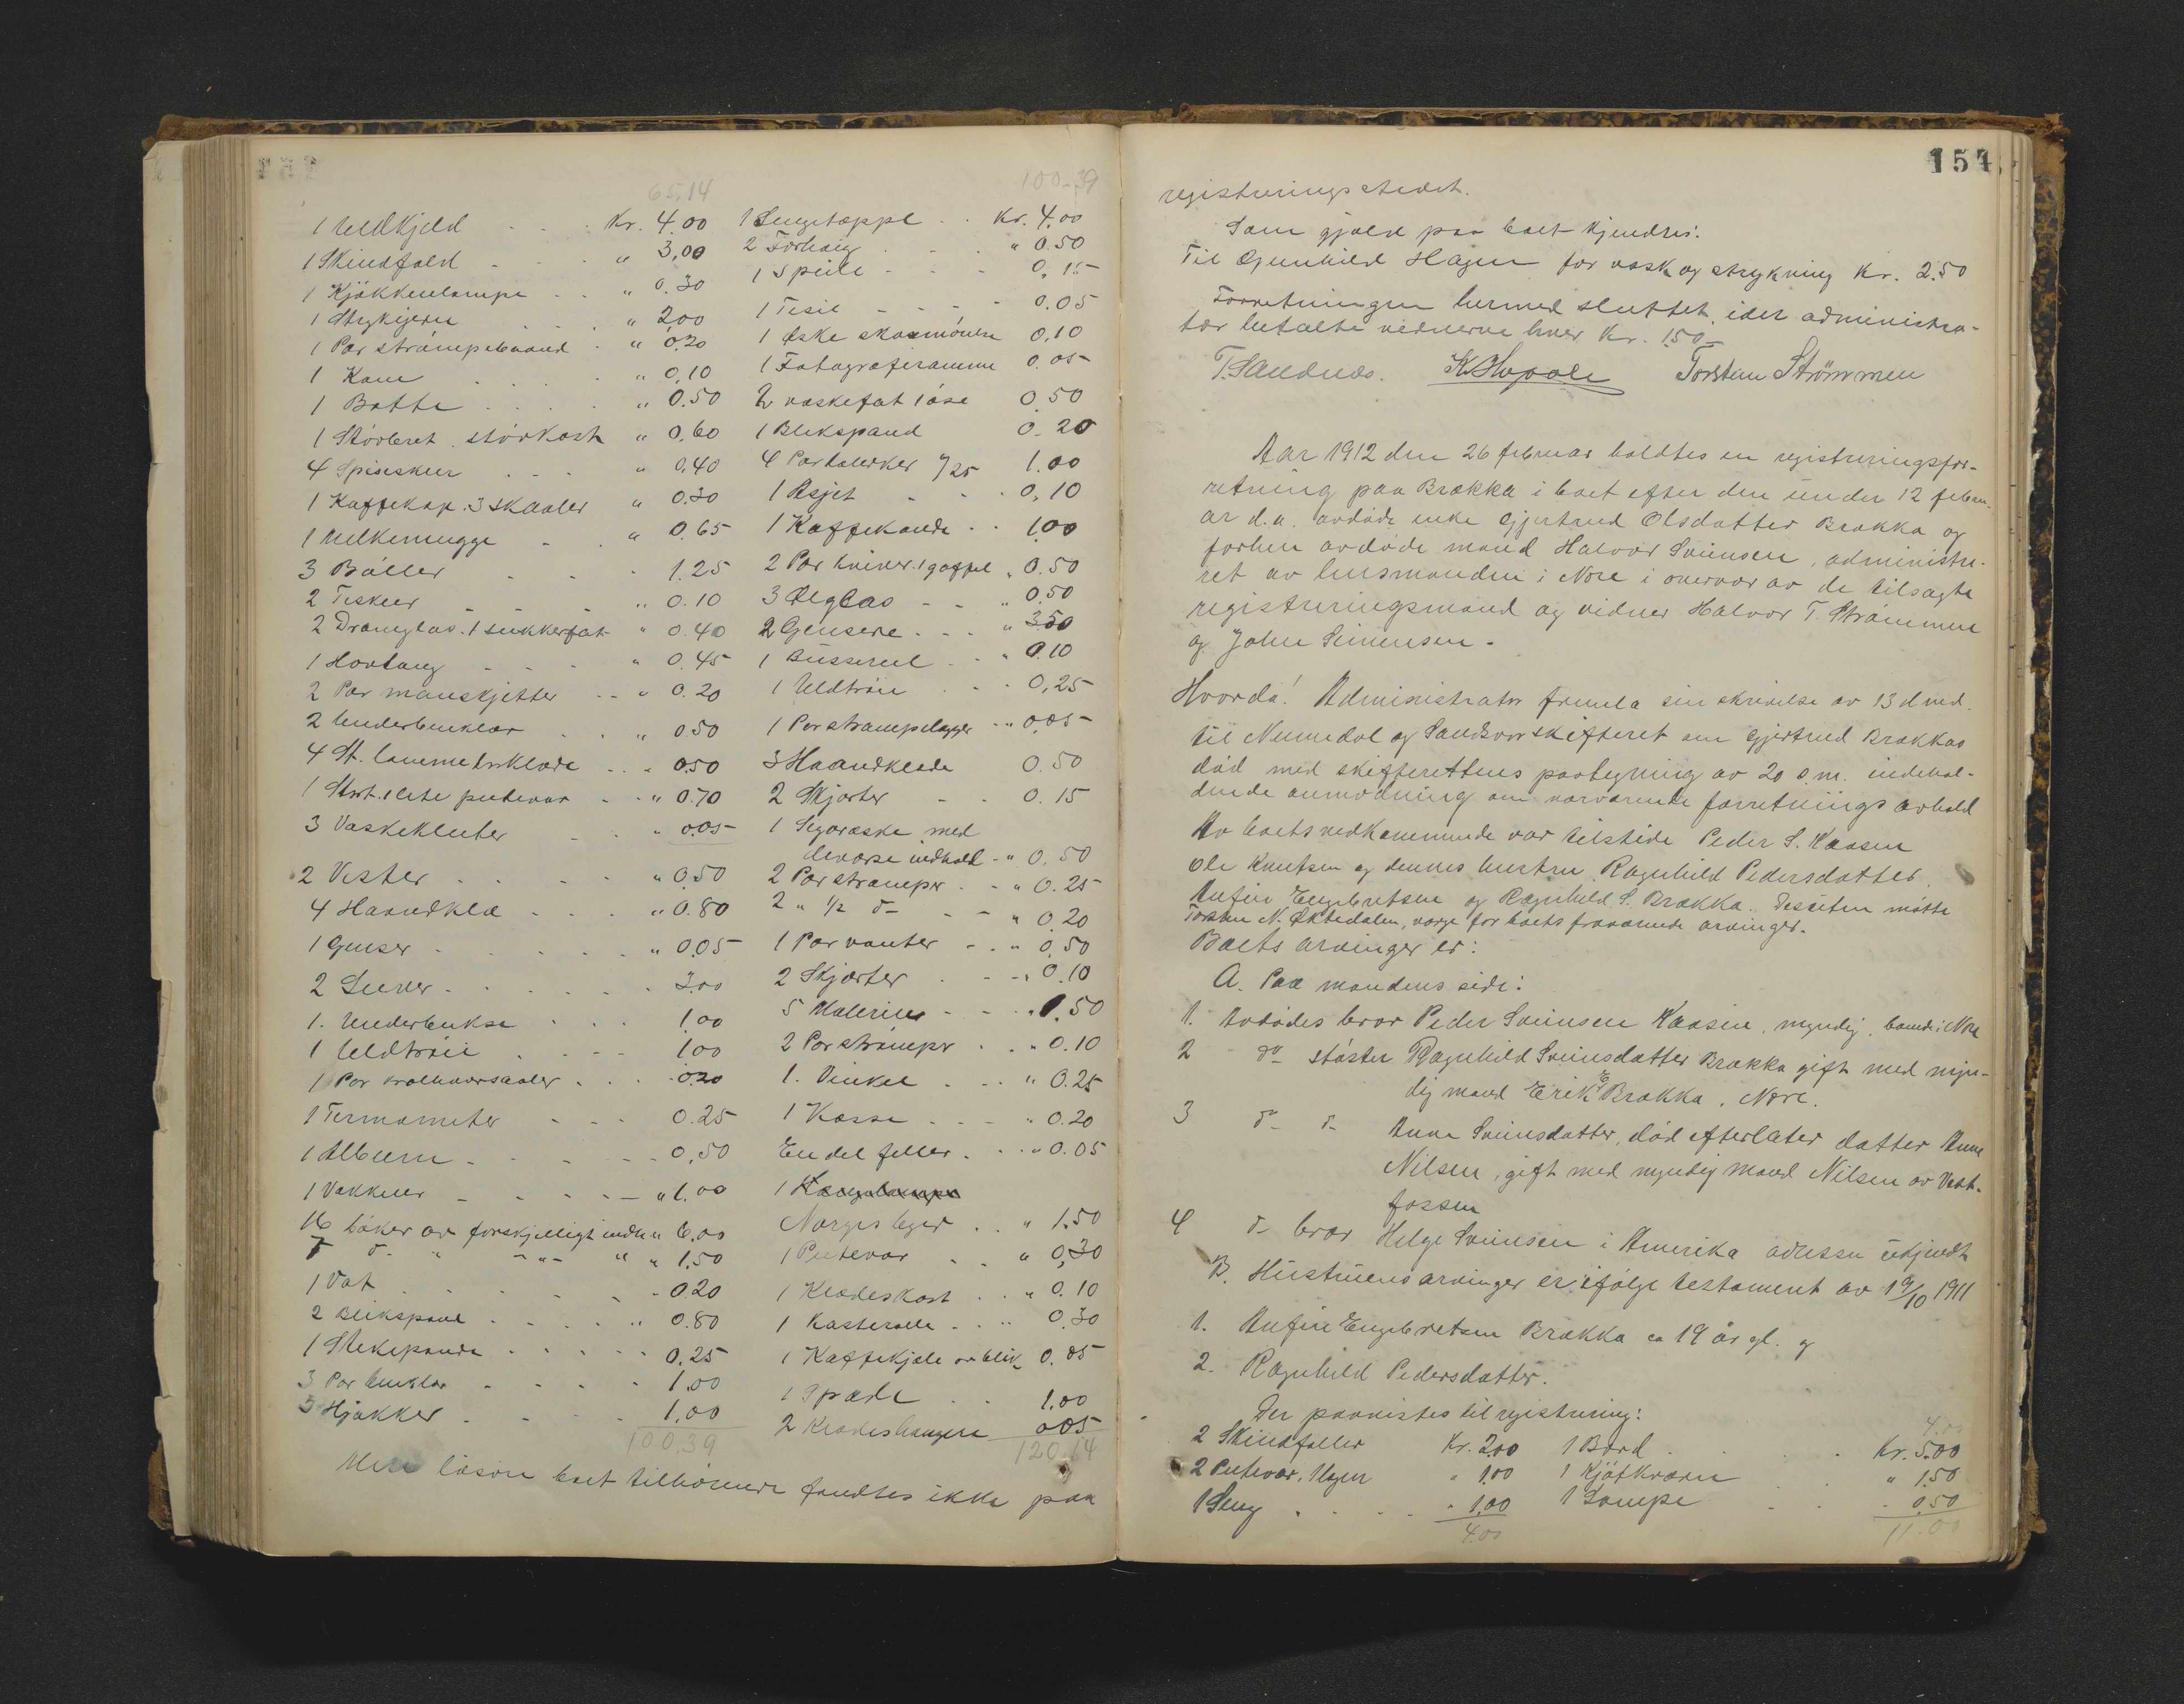 65,14
1 Uldkjeld Kr. 4.00
1 Skindfeld " 3,00
1 Kjøkkenlampe " 0.30
1 Strykejern " 2.00
1 Par strømpebaand " 0.20
1 Kam " 0,10
1 Bøtte " 0.50
1 Störbret. störkost " 0,60
4 Spiseskeer " 0,40
1 Kaffekop. 3 skaaler " 0.30
1 Melkemugge " 0.65
3 Boller 1.25
2 Teskeer " 0.10
2 Dramglas. 1 sukkerfat " 0.40
1 Hovtang " 0.45
2 Par manskjetter " 0.20
2 Underbenklær " 0.50
4 St. lommetørklæde 0.50
1 Stort. 1 lite putevar " 0.70
3 Vaskekluter " 0.05
2 Vester " 0.50
4 Haandklæ " 0.80
1 Genser " 0.05
2 Luer 3.00
1. Underbukse 1.00
1 Uldtröie 1.00
1 Par 0.20
1 Termometer 0.25
1 Album 0,50
1 Vækker " 1.00
16 böker av forskjelligt indh " 6.00
7 d- " -"- " " 1.50
1 Vat 0.20
2 Blikspand " 0.80
1 Stekepande 0.25
3 Par benklær 1.00
3 Hjakker 1.00
100.39
Mere lösöre boet tilhörende fandtes ikke paa
100-39
1 Sengetæppe Kr. 4.00
2 Forhæng " 0.50
1 Speile 0,15
1 Tesil 0.05
1 Æske skosmörelse 0,10
1 Fotografiramme 0.05
2 vaskefat 1 öse 0.50
1 Blikspand 0.20
4 Par talerker 1.00
1 Asjet 0,10
1 Kaffekande 1.00
2 Par kniver. 1 gaffel " 0.50
3 Ölglas " 0.50
2 Gensere " 3.50
1 0.10
1 Uldtröie 0,25
1 Par strømpelegger " 0.05
3 Haandklæde 0.50
2 Skjorter 0.15
1 Sigaræske med
diverse indhold " 0.50
2 Par strømper " 0.25
2 " 1/2 d- " 0.20
1 Par vanter " 0.50
2 Skjorter " 0.10
5 Malerier " 1.50
2 Par strømper " 0.10
1. Vinkel " 0.25
1 Kasse " 0.20
En del feller " 0.05
1
Norges leger " 1.50
1 Putevar " 0,30
1 Klædeskost " 0.10
1 Kasterolle " 0.30
1 Kaffekjele av blik 0.05
1 Spade 1.00
2 Klædeshengere 0.05
120.64
154.
registreringsstedet.
Som gjæld paa boet kjendtes:
Til Gunhild Hagen for vask og strykning Kr. 2.50
Forretningen hermed sluttet, idet administra-
tor betalte vidnerne hver Kr. 1.50 -
T. Sandnes. Torstein Strömmen
Aar 1912 den 26 februar holdtes en registreringsfor-
retning paa Brække i boet efter den under 12 febru-
ar d.a. avdöde enke Gjertrud Olsdatter Brække og
forhen avdöde mand Halvor Sveinsen, administre-
ret av lensmanden i Nore i overvær av de tilsagte
registreringsmænd og vidner Halvor T. Strömmen
og John Simensen -
Hvorda! Administrator fremla sin skrivelse av 13 d md.
til Numedal og Sandsvær skifteret om Gjertrud Brækkes
död med skifterettens paategning av 20 s.m. indehol-
dende anmodning om nærværende forretnings avhold
Av boets vedkommende var tilstede Peder S. Kaasen
Ole Knutsen og dennes hustru Ragnhild Pedersdatter.
Anfin Engebretsen og Ragnhild S. Brække. Desuten mötte
Torsten N. Öktedalen, verge for boets fraværende arvinger.
Boets arvinger er:
A. Paa mandens side:
1. Avdödes bror Peder Sveinsen Kaasen, myndig, bonde i Nore
2 do söster Ragnhild Sveinsdatter Brække gift med myn-
dig mand Erik E Brække, Nore.
3 d- d- Anne Sveinsdatter, död efterlater datter Anne
Nilsen, gift med myndig mand Nilsen av Vest-
fossen
4 d- bror Helge Sveinsen i Amerika adresse ukjendt
B. Hustruens arvinger er ifölge testament av 19/10 1911
1. Anfin Engebretsen Brække ca 19 år gl. og
2. Ragnhild Pedersdatter.
Der paavistes til registrering:
2 Skindfeller Kr. 2.00
2 Putevar. " 1.00
1 Seng " 1.00
4.00
4.00
1 Bord Kr. 5.00
1 Kjötkværn " 1.50
1 Lampe " 0.50
11.00